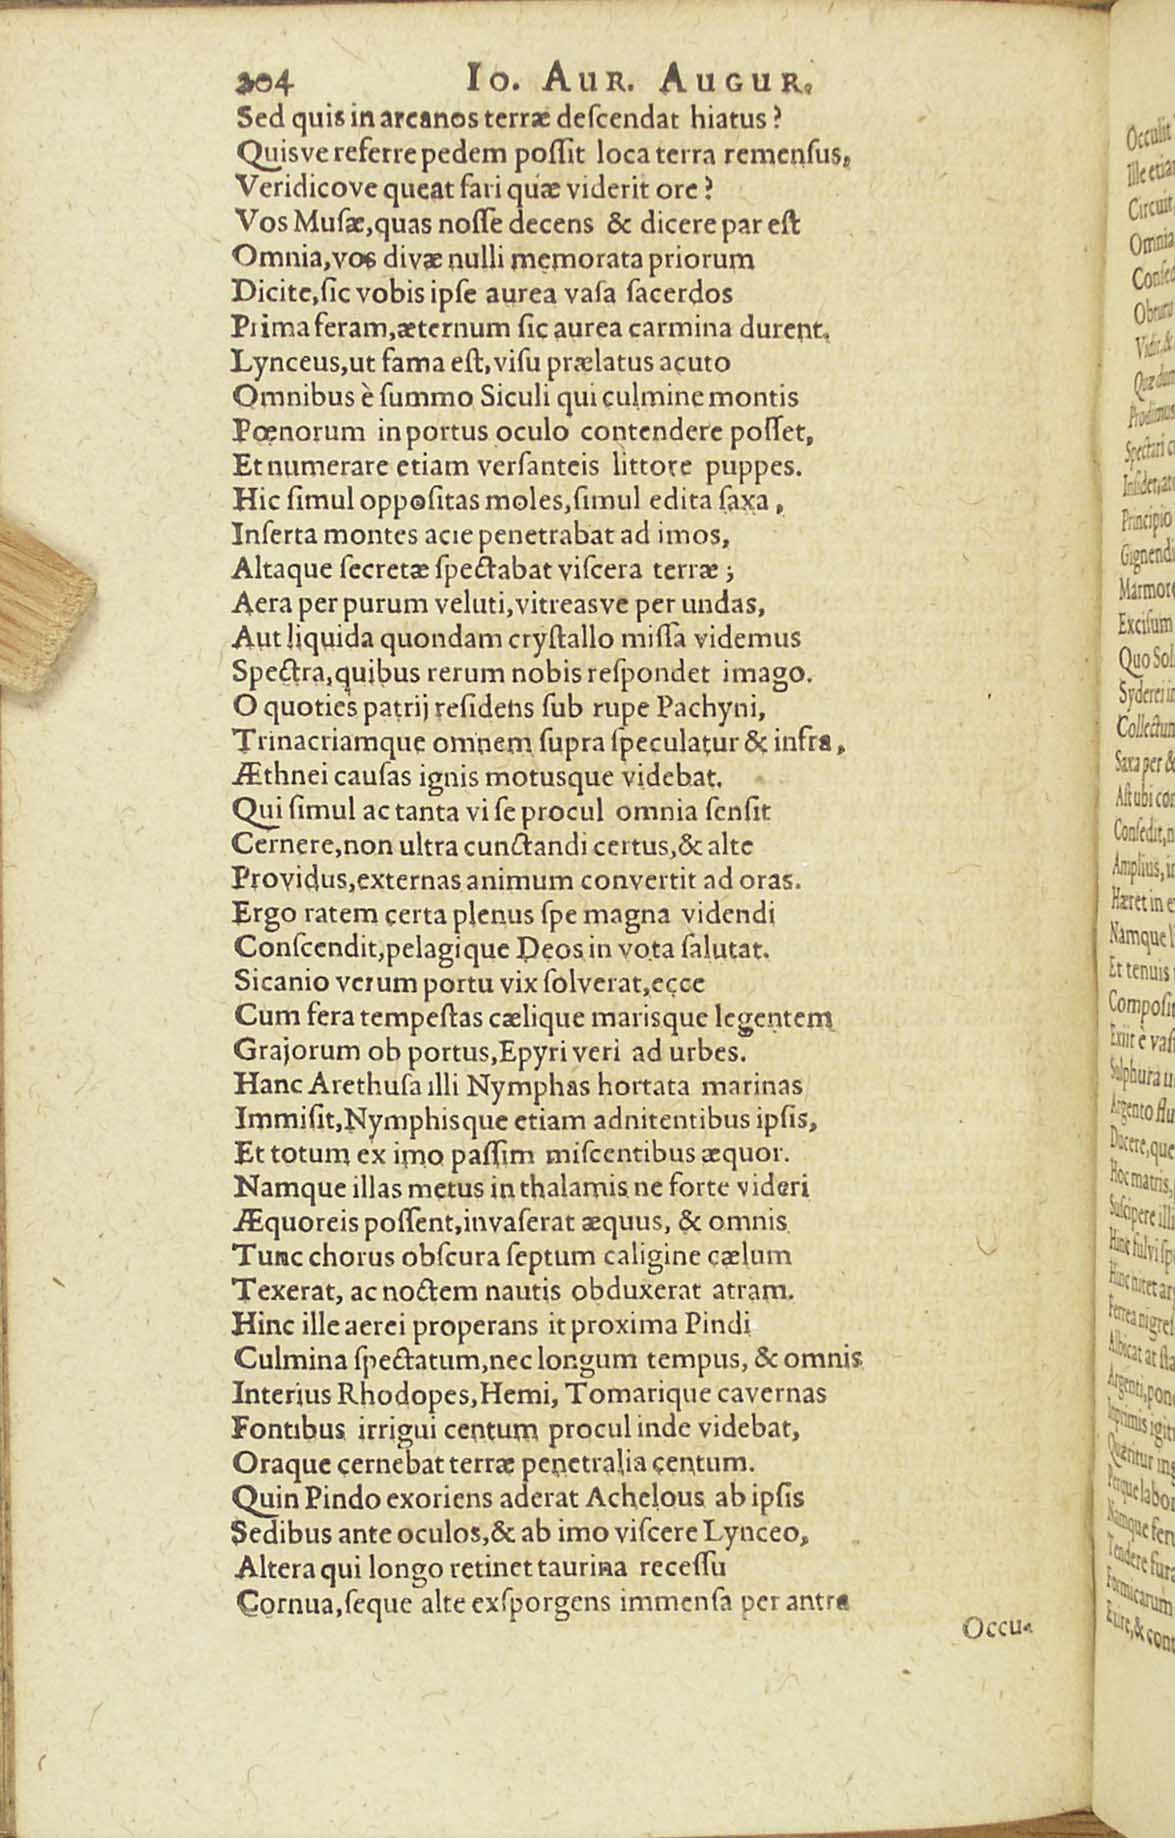 204 IO. AUR. AUGUR.
Sed quis in arcanos terræ deſcendat hiatus?
Quisve referre pedem poſſit loca terra remenſus,
Veridicove queat fari quæ viderit ore?
Vos Muſæ, quas noſſe decens & dicere par eſt
Omnia, vos divæ nulli memorata priorum
Dicite, ſic vobis ipſe aurea vaſa ſacerdos
Prima feram, æternum ſic aurea carmina durent.
Lynceus, ut fama eſt, viſu prælatus acuto
Omnibus è ſummo Siculi qui culmine montis
Pœnorum in portus oculo contendere poſſet,
Et numerare etiam verſanteis littore puppes.
Hic ſimul oppoſitas moles, ſimul edita ſaxa,
Inſerta montes acie penetrabat ad imos,
Altaque ſecretæ ſpectabat viſcera terræ;
Aera per purum veluti, vitreasve per undas,
Aut liquida quondam cryſtallo miſſa videmus
Spectra, quibus rerum nobis reſpondet imago.
O quoties patrij reſidens ſub rupe Pachyni,
Trinacriamque omnem ſupra ſpeculatur & infra,
Æthnei cauſas ignis motusque videbat.
Qui ſimul ac tanta vi ſe procul omnia ſenſit
Cernere, non ultra cunctandi certus, & alte
Providus, externas animum convertit ad oras.
Ergo ratem certa plenus ſpe magna videndi
Conſcendit, pelagique Deos in vota ſalutat.
Sicanio verum portu vix ſolverat, ecce
Cum fera tempeſtas cælique marisque legentem
Grajorum ob portus, Epyri veri ad urbes.
Hanc Arethuſa illi Nymphas hortata marinas
Immiſit, Nymphisque etiam adnitentibus ipſis,
Et totum ex imo paſſim miſcentibus æquor.
Namque illas metus in thalamis ne forte videri
Æquoreis poſſent, invaſerat æquus, & omnis
Tunc chorus obſcura ſeptum caligine cælum
Texerat, ac noctem nautis obduxerat atram.
Hinc ille aerei properans it proxima Pindi
Culmina ſpectatum, nec longum tempus, & omnis
Interius Rhodopes, Hemi, Tomarique cavernas
Fontibus irrigui centum procul inde videbat,
Oraque cernebat terræ penetralia centum.
Quin Pindo exoriens aderat Achelous ab ipſis
Sedibus ante oculos, & ab imo viſcere Lynceo,
Altera qui longo retinet taurina receſſu
Cornua, ſeque alte exſporgens immenſa per antra
Occu-
Occulit
Ille
Circuit
Omnia
Vidit, &
Prodimus
Spectari
Principio
Gignendi
Exciſum
Quo Sol
Syderei
Saxa per &
Aſt ubi
Conſedit,
Amplius,
Hæret in
Namque
Et tenuis
Exiit è
Sulphura
Argento
Ducere, que
Hoc matris,
Suſcipere illi
Hinc fulvi
Hinc nitet
Ferrea
Albicat at
Argenti,
Quæritur
Perque
Namque
Tendere
Formicarum
Exire, &